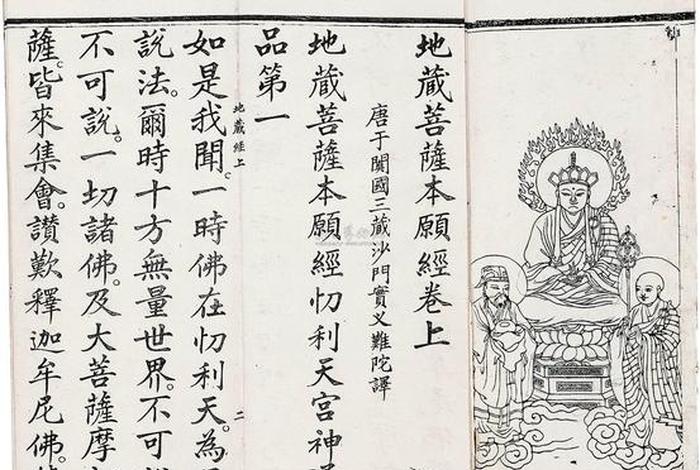 地藏菩薩本願經卷上
唐于闐國三藏沙門實叉難陀譯
地藏菩薩本願經忉利天宮神
品第一
地藏經上
二
如是我聞。一時佛在忉利天。為
說法。爾時十方無量世界。不可
不可說。一切諸佛。及大菩薩摩
薩。皆來集會。讚歎釋迦牟尼佛。